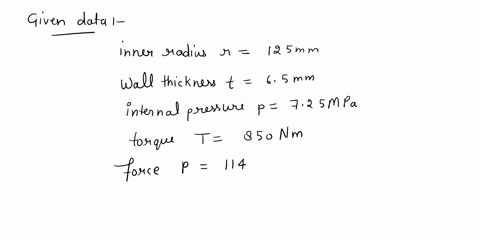 Given data :-
inner radius r = 125mm
wall thickness t = 6.5mm
internal pressure p = 7.25MPa
torque T = 850 Nm
force P = 114